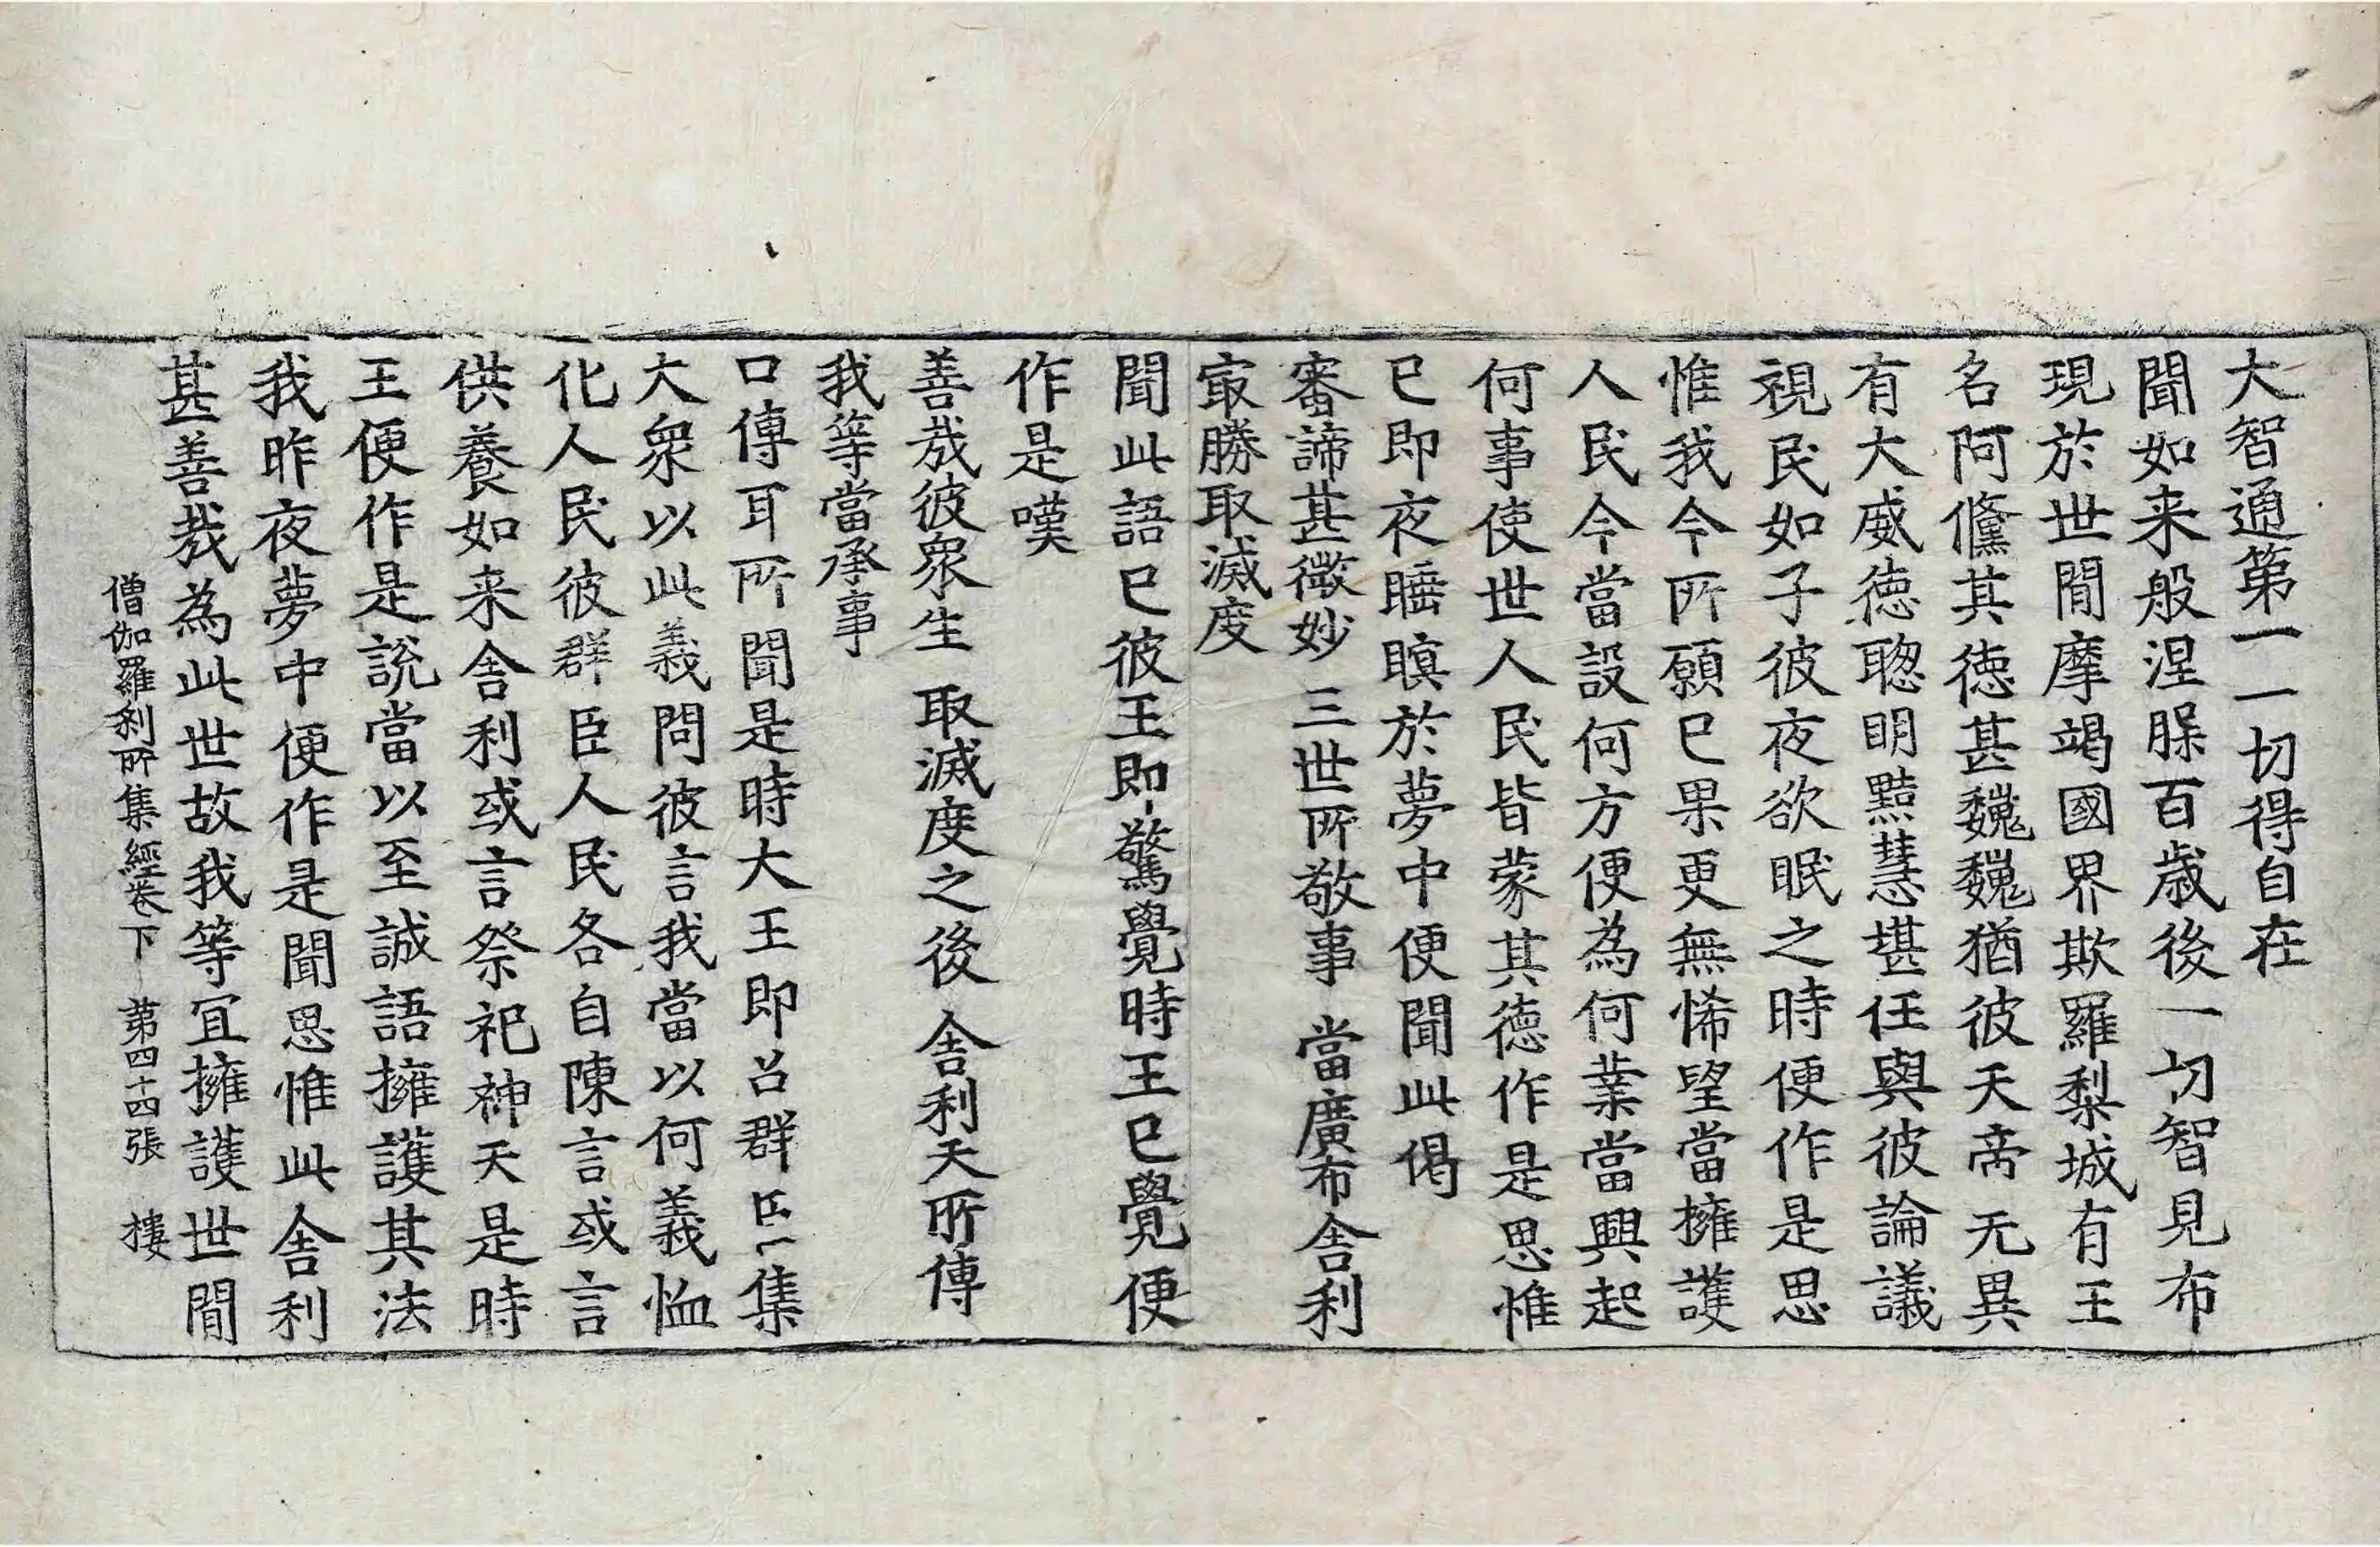 大智通第一一切得自在
聞如来般涅槃百歳後一切智見布
現於世間摩竭國界欺羅梨城有王
名阿儵其徳甚巍巍猶彼天帝无異
有大威徳聦明黠慧堪任與彼論議
視民如子彼夜欲眠之時便作是思
惟我今所願已果更無悕望當擁護
人民今當設何方便為何業當興起
何事使世人民皆蒙其徳作是思惟
已即夜睡瞑於夢中便聞此偈
審諦甚微妙 三世所敬事 當廣布舎利
㝡勝取滅度
聞此語已彼王即驚覺時王已覺便
作是嘆
善㢤彼衆生 取滅度之後 舎利天所傳
我等當承事
口傳耳所聞是時大王即召群臣集
大衆以此義問彼言我當以何義恤
化人民彼群臣人民各自陳言或言
供養如来舎利或言祭祀神天是時
王便作是説當以至誠語擁護其法
我昨夜夢中便作是聞思惟此舎利
甚善㢤為此世故我等冝擁護世間
僧伽羅刹所集經卷下 第四十四張 樓